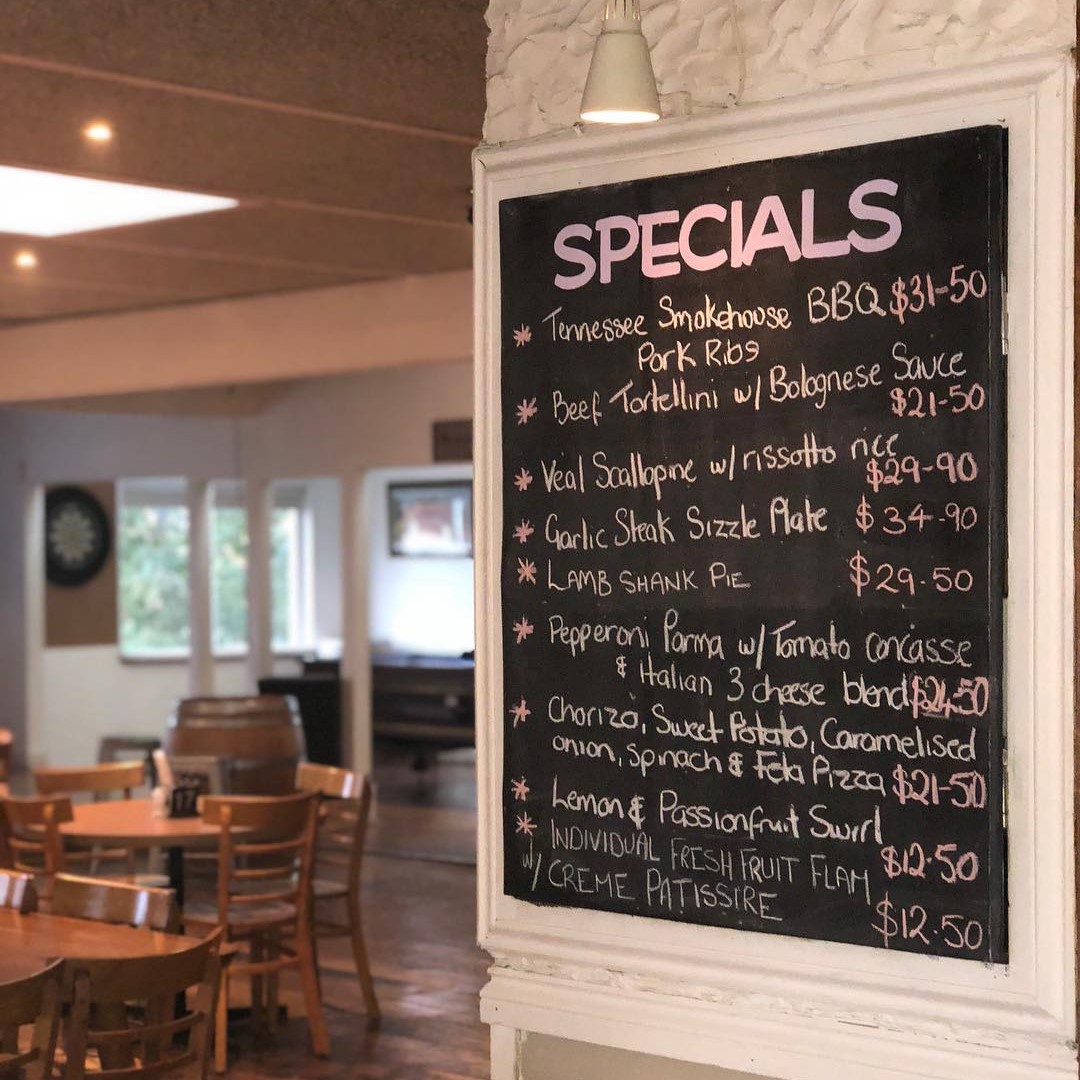 SPECIALS
* Tennessee Smokehouse BBQ $31-50
Pork Ribs
* Beef Tortellini w/ Bolognese Sauce
$21-50
* Veal Scallopine w/ rissotto rice
$29-90
* Garlic Steak Sizzle Plate $34-90
* LAMB SHANK PIE $29.50
* Pepperoni Parma w/ Tomato concasse
& Italian 3 cheese blend $24-50
* Chorizo, Sweet Potato, Caramelised
onion, Spinach & Feta Pizza $21-50
* Lemon & Passionfruit Swirl
$12.50
* INDIVIDUAL FRESH FRUIT FLAM
w/ CREME PATISSIRE
$12.50
17